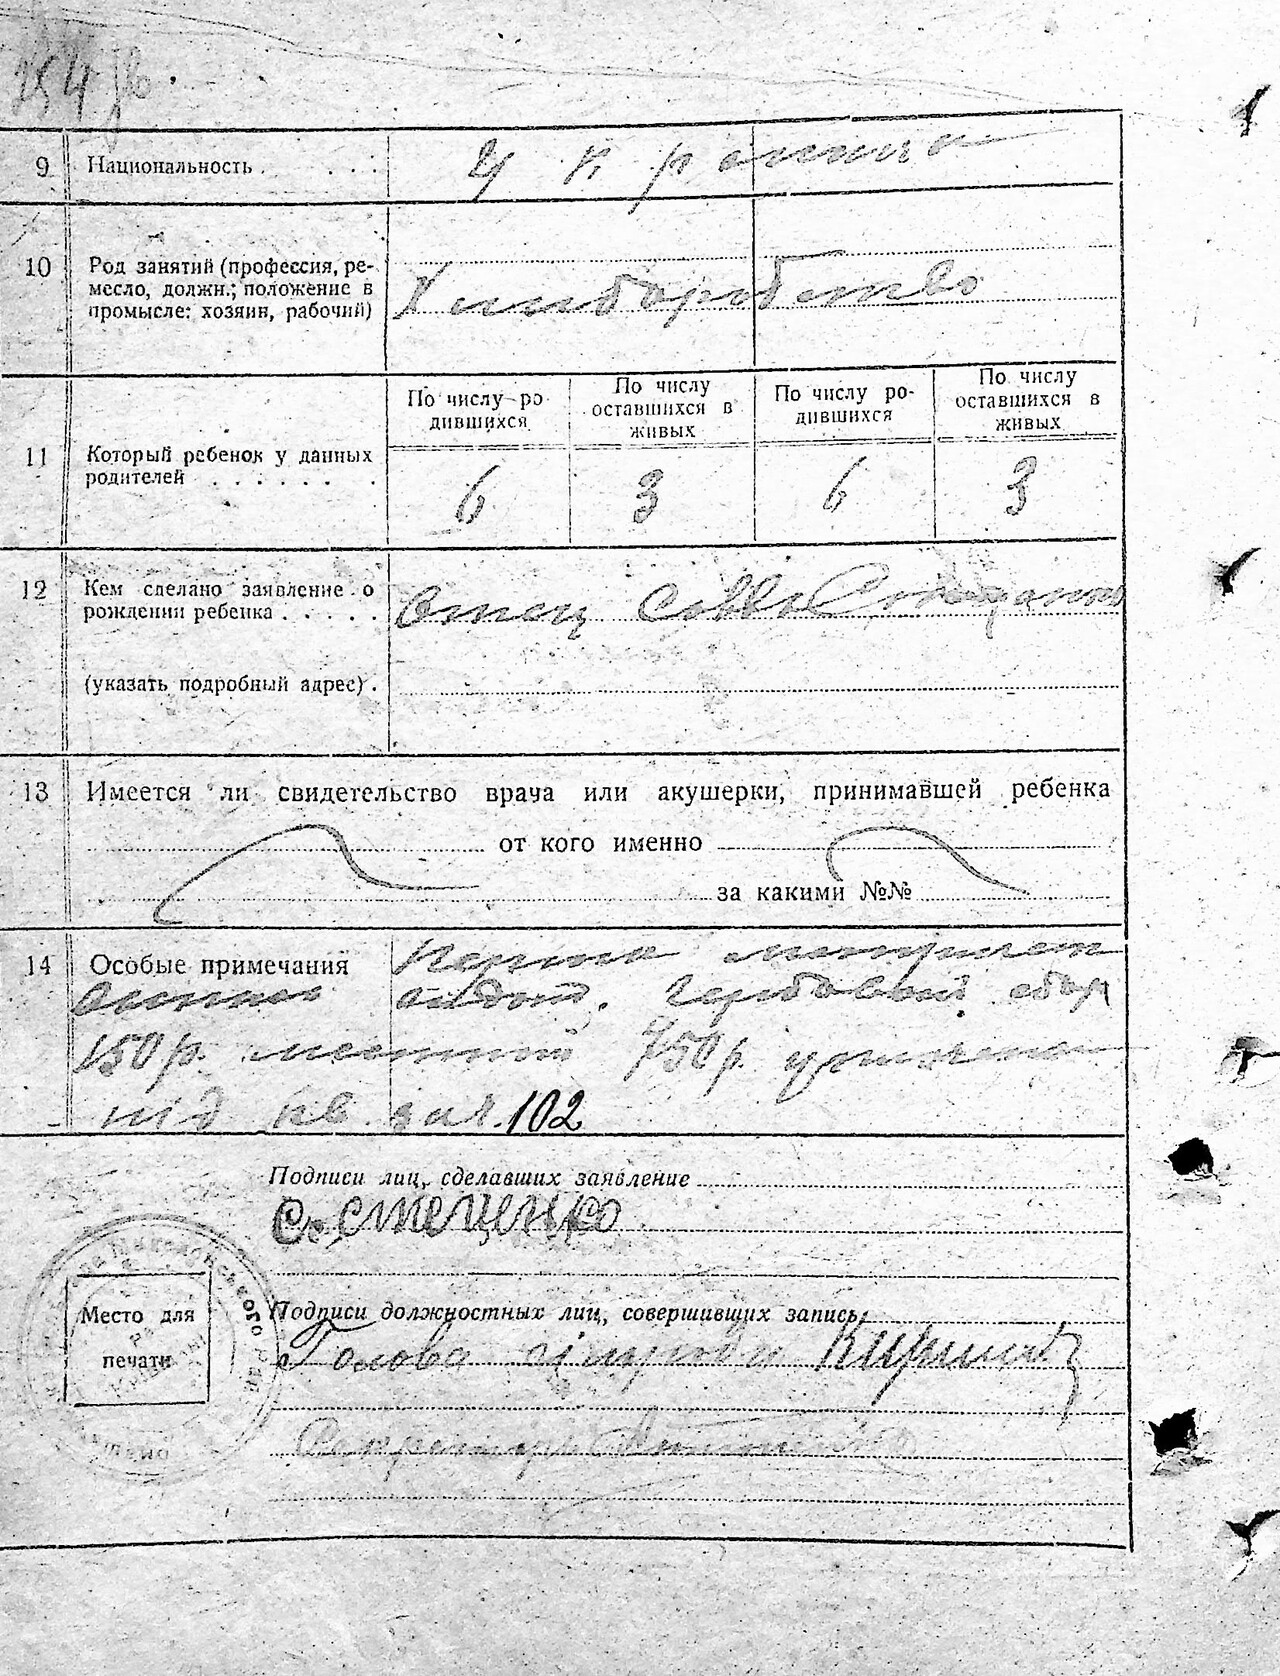 254 зв.
9 Национальность . . . . Українці
10 Род занятий (профессия, ре-
месло, должн.; положение в
промысле: хозяин, рабочий)
Хлиборобство
11 Который ребенок у данных
родителей . . . . . . .
По числу ро-
дившихся
По числу
оставшихся в
живых
По числу ро-
дившихся
По числу
оставшихся в
живых
6 3 6 3
12 Кем сделано заявление о
рождении ребенка . . . . .
Отец Савва
(указать подробный адрес) .
13 Имеется ли свидетельство врача или акушерки, принимавшей ребенка
от кого именно
за какими №№
14 Особые примечания
гербовый сбор
150 р. местный 750 р.
під кв. за №. 102
Подписи лиц, сделавших заявление
С. Стеценко
Подписи должностных лиц, совершивших запись:
Место для
печати
Голова сільради
Секретарь